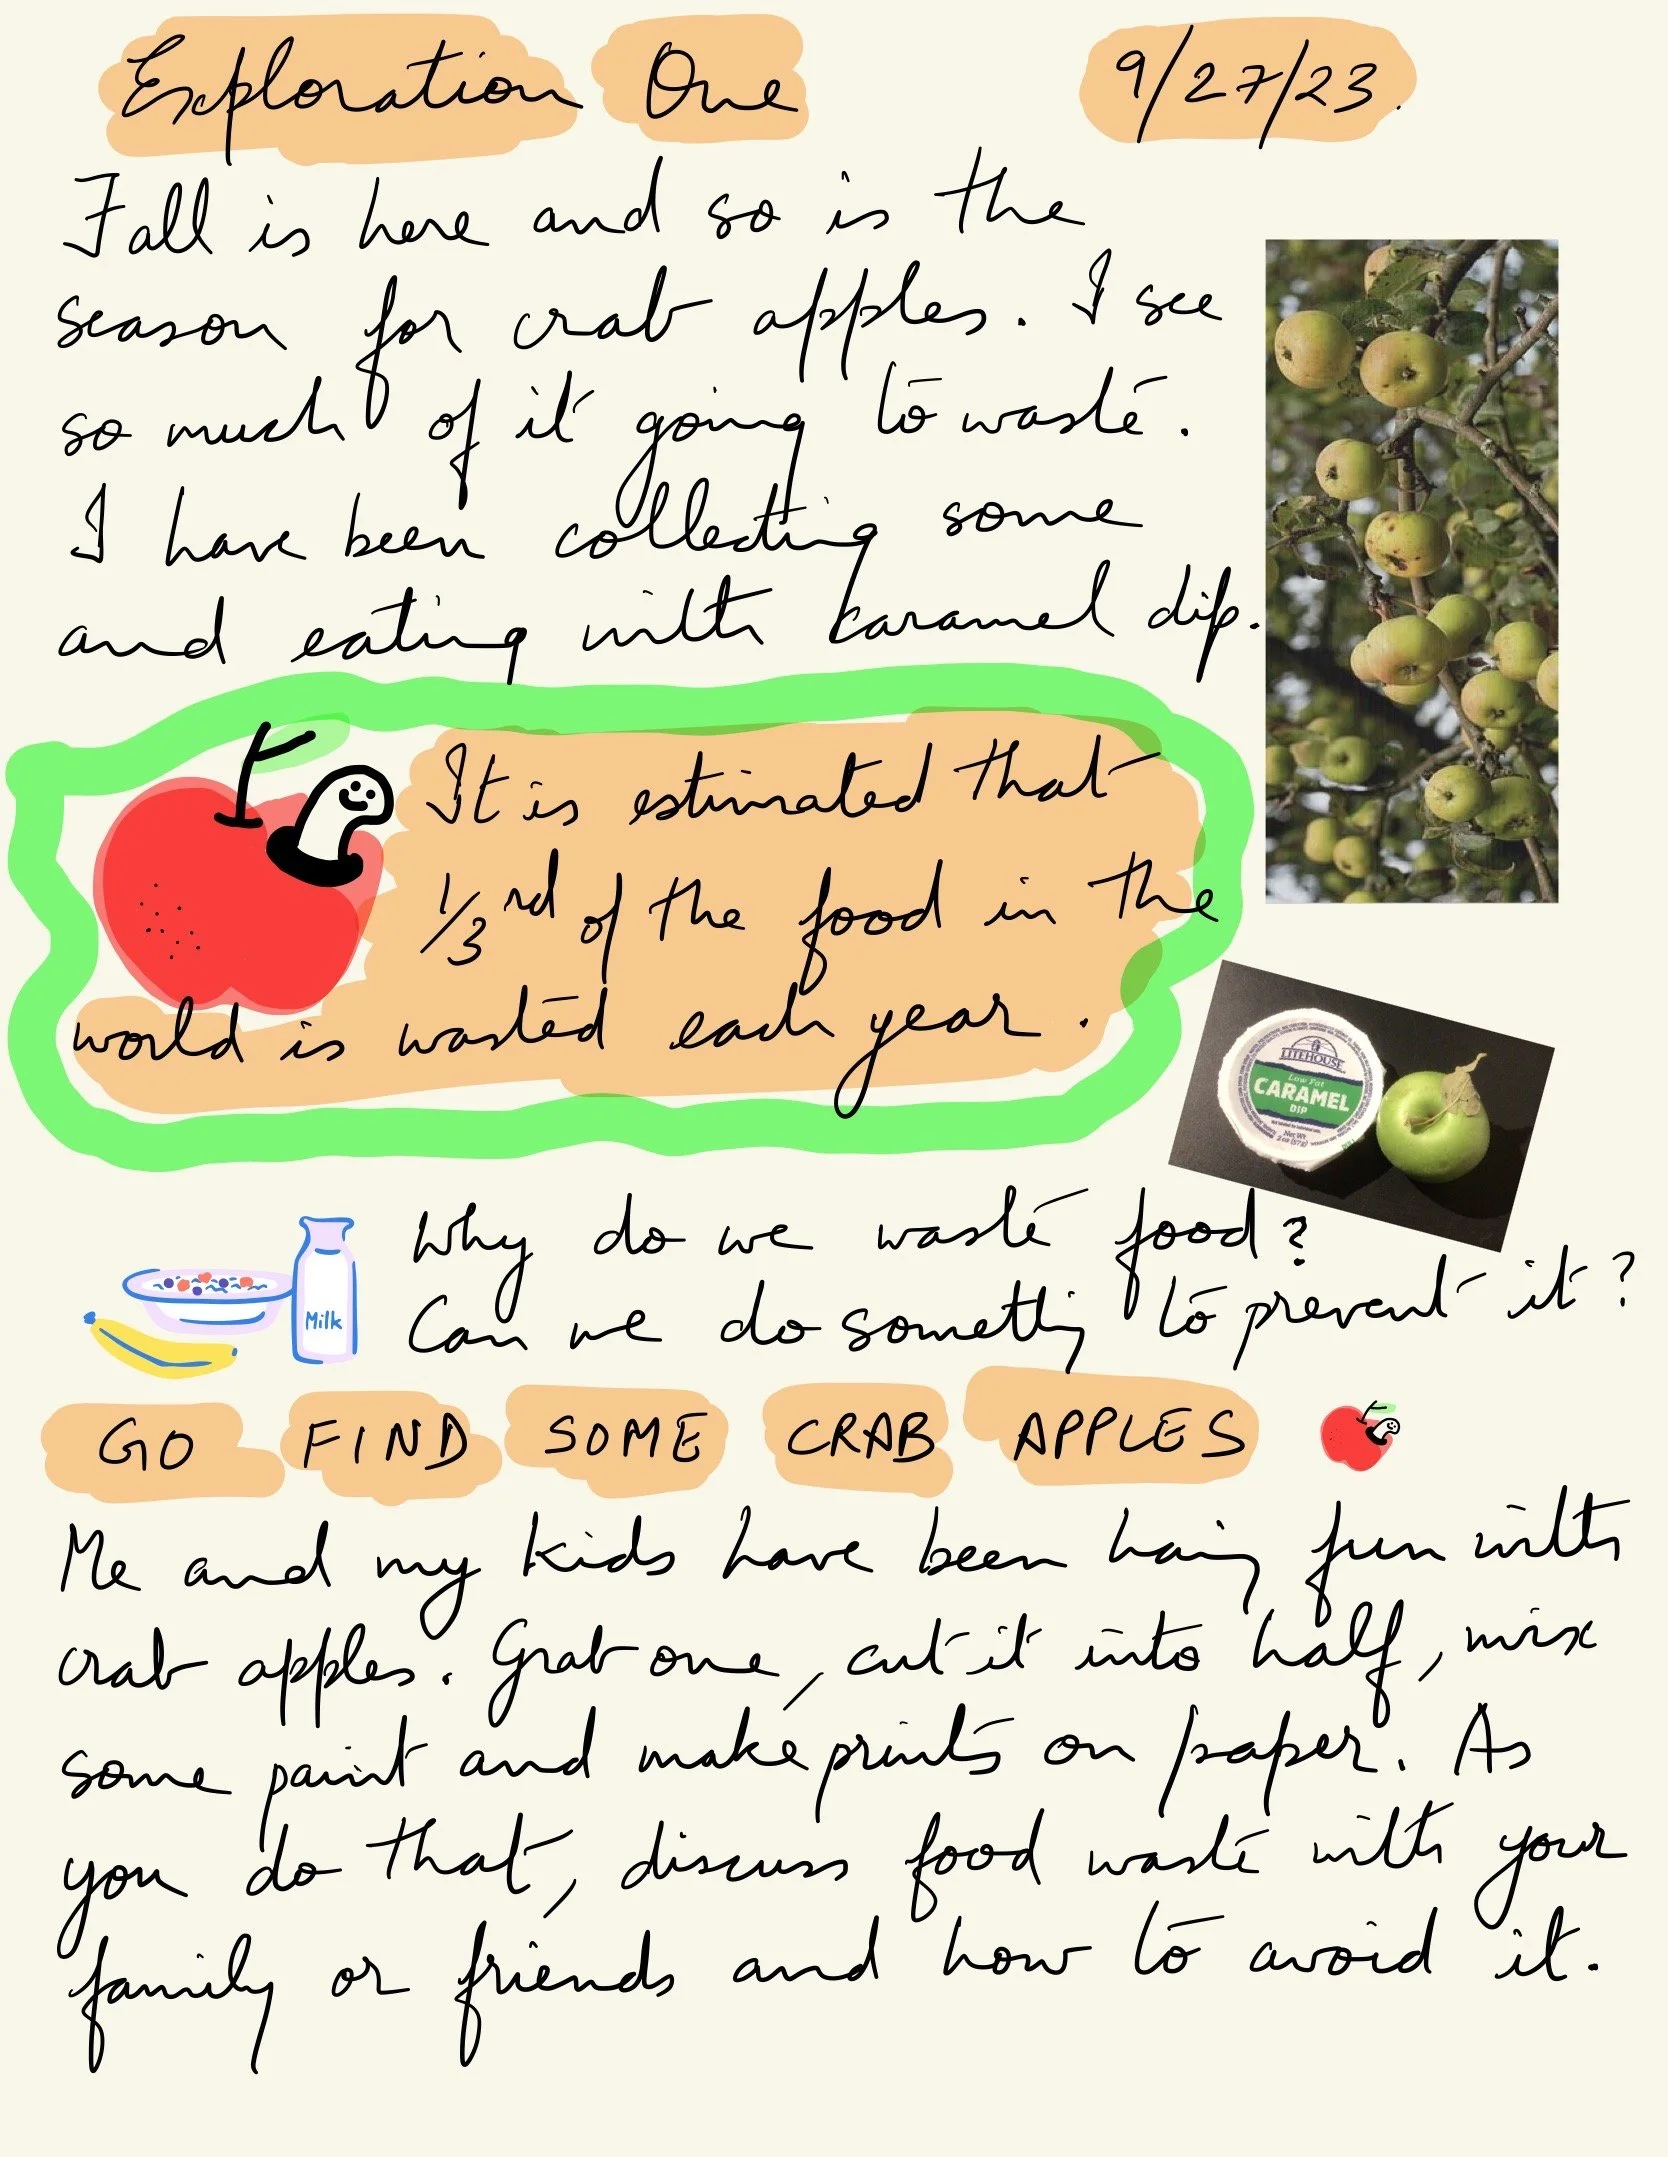 Exploration One 9/27/23.
Fall is here and so is the
season for crab apples. I see
so much of it going to waste.
I have been collecting some
and eating with karamel dip.
It is estimated that
1/3rd of the food in the
world is wasted each year.
LITEHOUSE
Low Fat
CARAMEL
DIP
Net Wt
2 oz (57g)
Why do we waste food?
Can we do somethig to prevent it?
Milk
GO FIND SOME CRAB APPLES
Me and my kids have been haig fun with
crab apples. Grab one, cut it into half, mix
some paint and make prints on paper. As
you do that, discuss food waste with your
family or friends and how to avoid it.